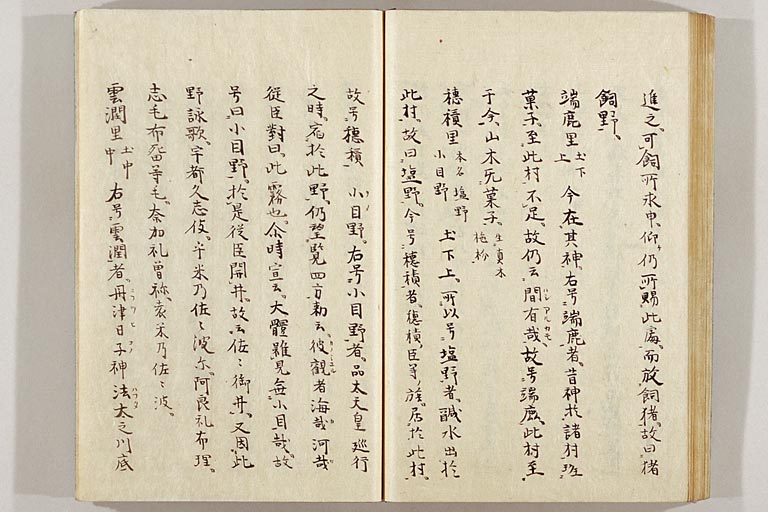 進之可飼所求申仰仍所賜此處而放飼猪故曰猪
飼野
端鹿里 土下上 今在其神右号端鹿者昔神於諸村班
菓子至此村不足故仍云間有哉故号端鹿此村至
于今山木无菓子 生真木柂杉
穗積里 本名塩野小目野 土下上所以号塩野者鹹水出於
此村故曰塩野今号穗積者穗積臣等族居於此村
故号穗積 小目野右号小目野者品太天皇巡行
之時宿於此野仍望覽四方勅云彼觀者海哉河哉
從臣對曰此霧也尒時宣云大體雖見無小目哉故
号曰小目野於是從臣開井故云佐々御井又因此
野詠歌宇都久志伎乎米乃佐々波尓阿良礼布理
志毛布留等毛奈加礼曾祢袁米乃佐々波
雲潤里 土中中 右号雲潤者丹津日子神法太之川底